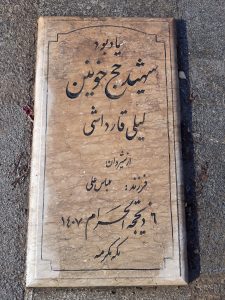 یادبود
شهید حج خونین
لیلی قارداشی
از شیروان
فرزند: عباس علی
۶ ذیحجة الحرام ۱۴۰۷
مکه مکرمه